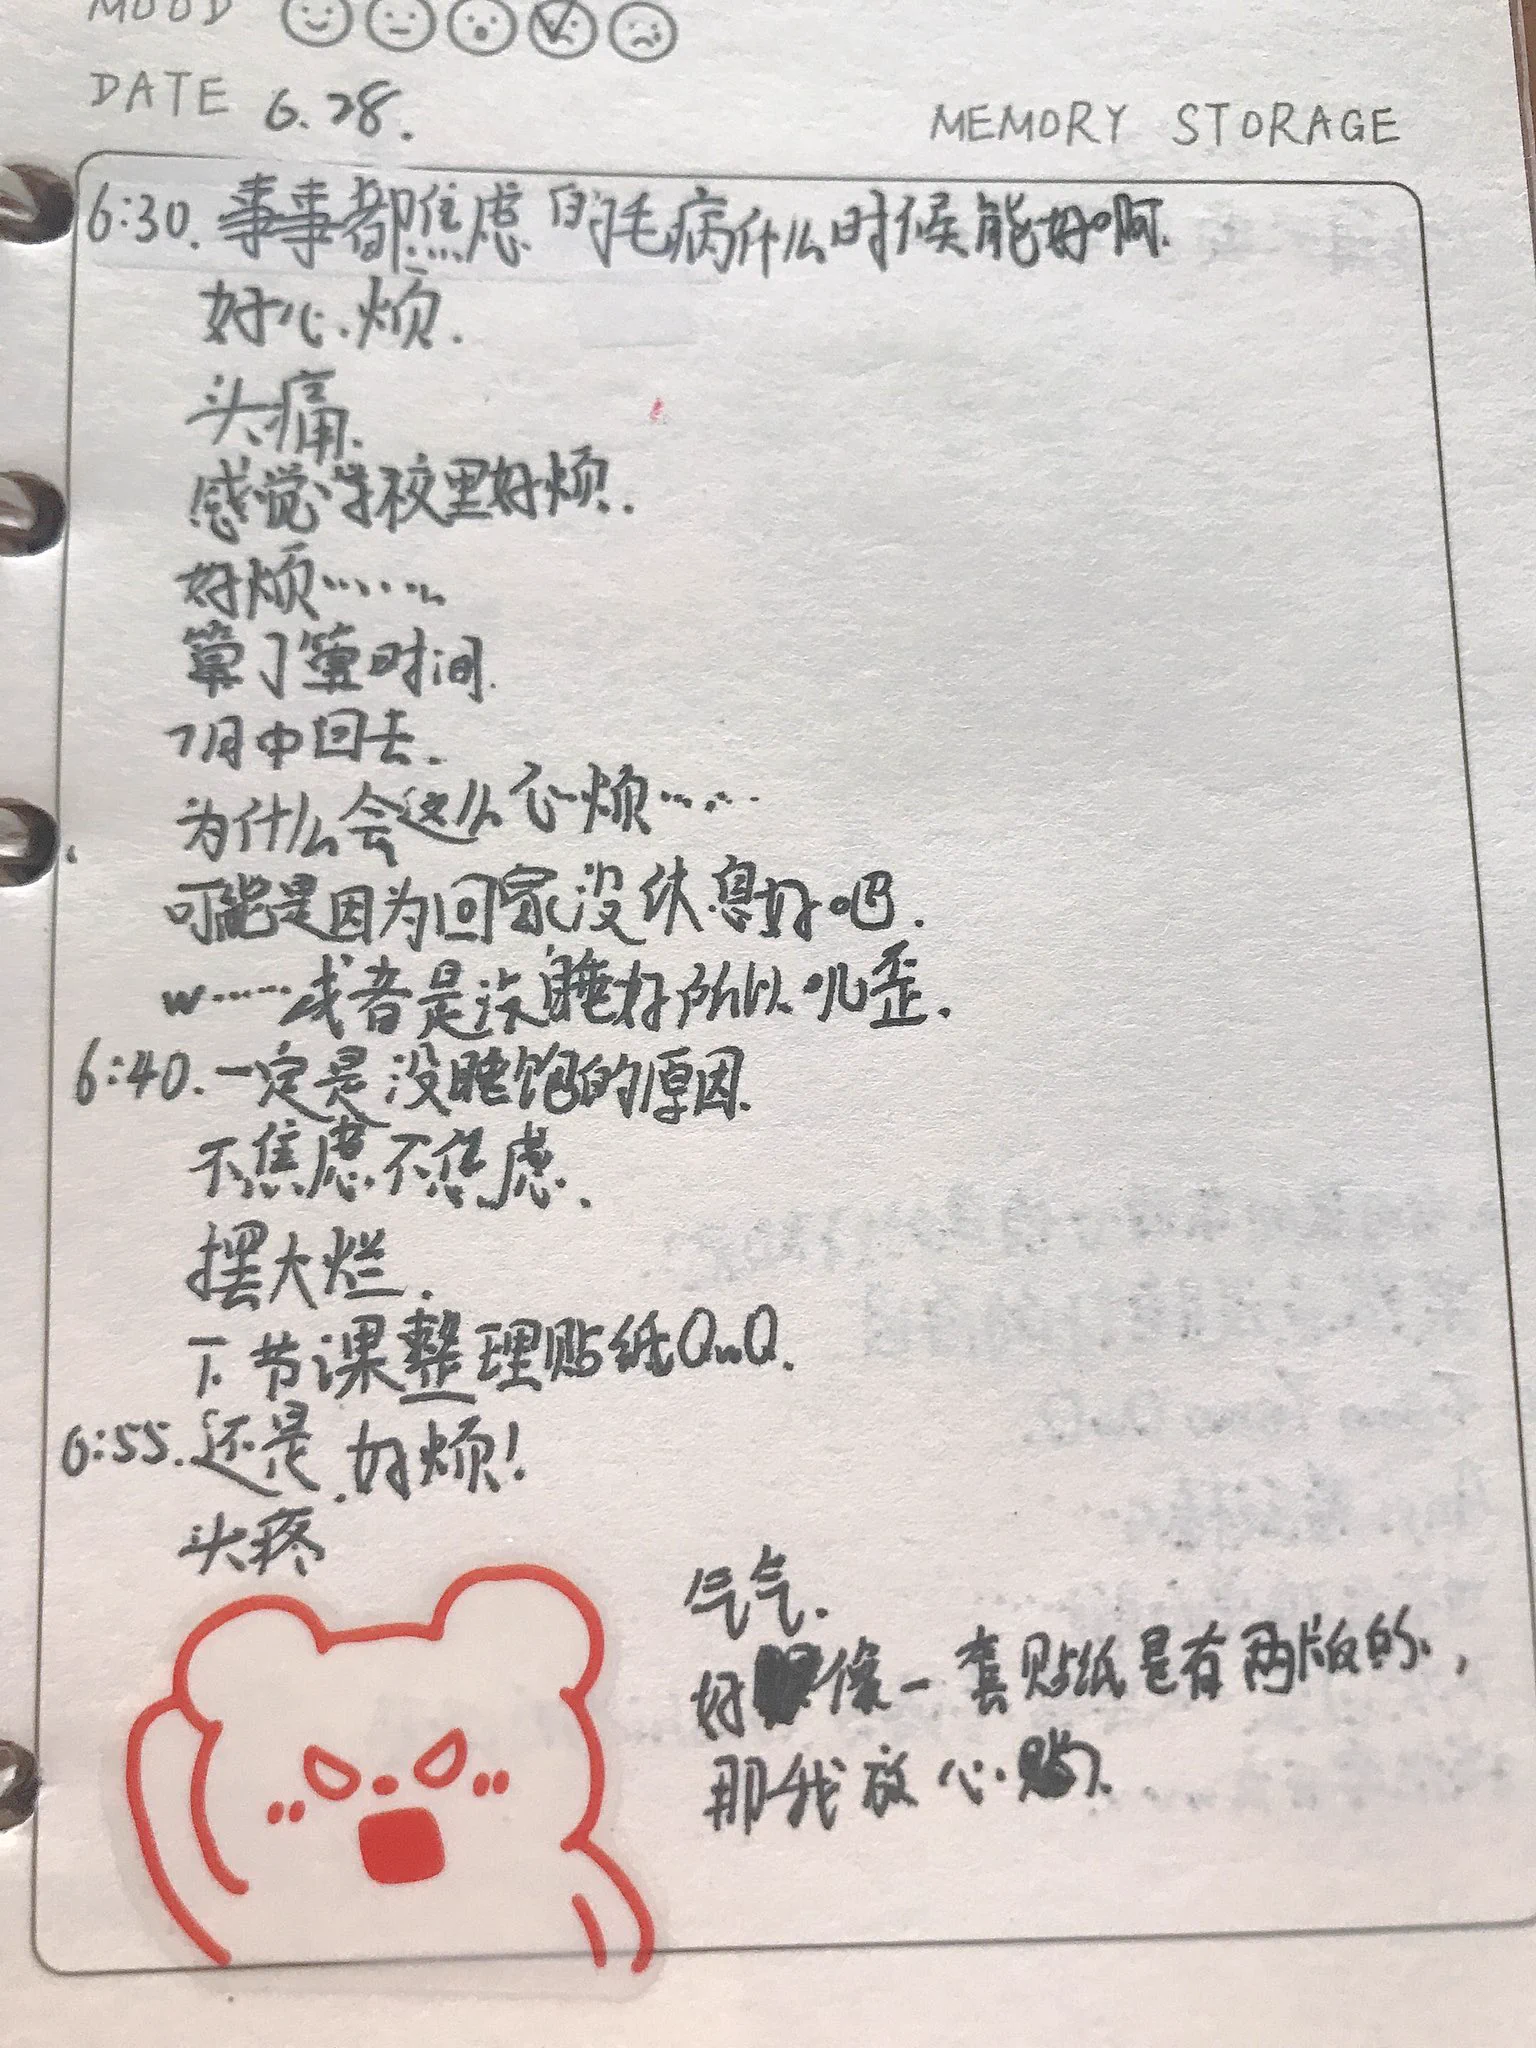 MOOD
DATE 6.28.
MEMORY STORAGE
6:30. 事事都焦虑的毛病什么时候能好啊.
好心烦.
头痛.
感觉学校里好烦.
好烦……
算了算时间.
7月中回去.
为什么会这么心烦……
可能是因为回家没休息好吧.
w……或者是没睡好所以叽歪.
6:40. 一定是没睡饱的原因.
不焦虑不焦虑.
摆大烂.
下节课整理贴纸QwQ.
6:55. 还是好烦!
头疼
气气.
好像一套贴纸是有两版的,
那我放心